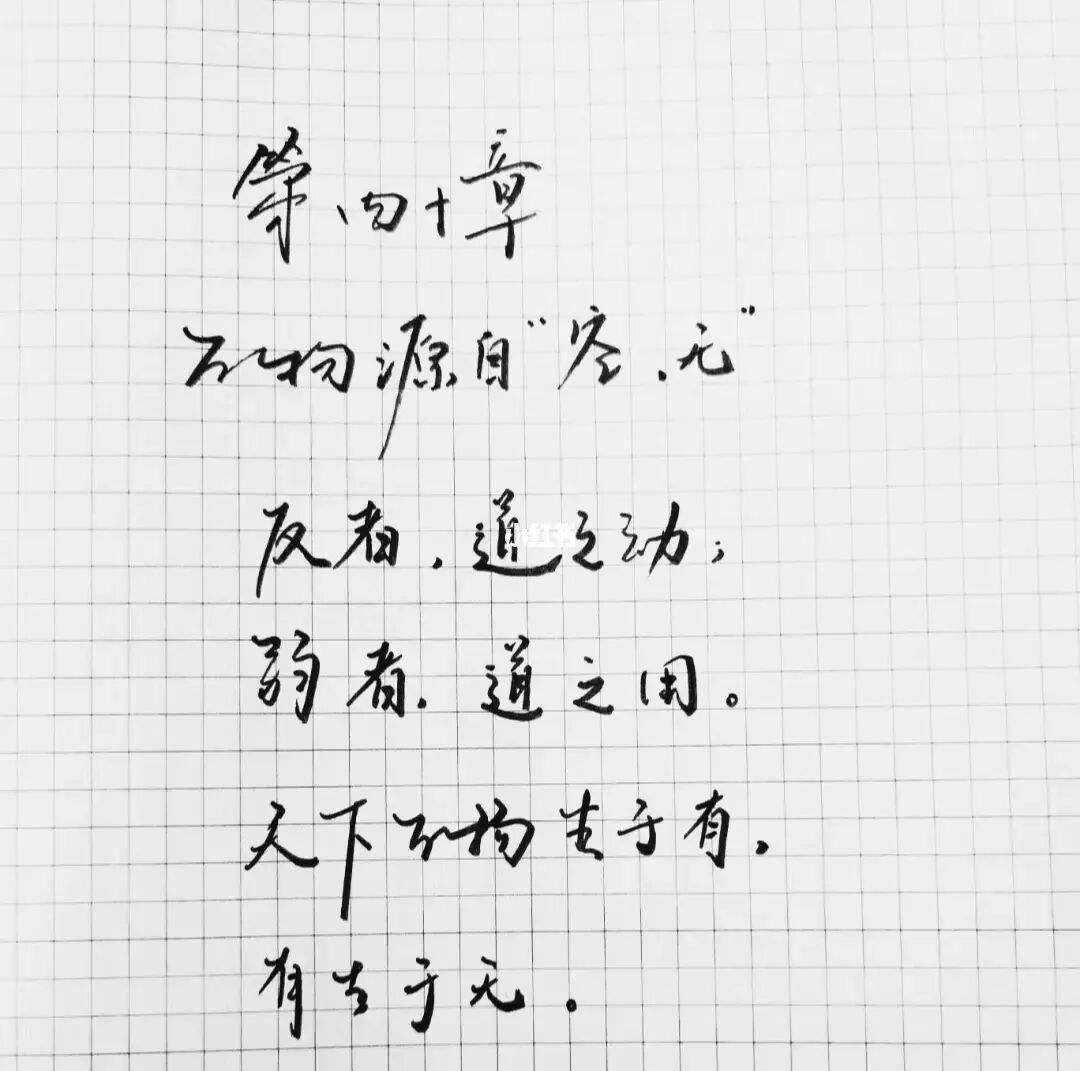 第四十章
万物源自“空，无”
反者，道之动；
弱者，道之用。
天下万物生于有，
有生于无。
小红书